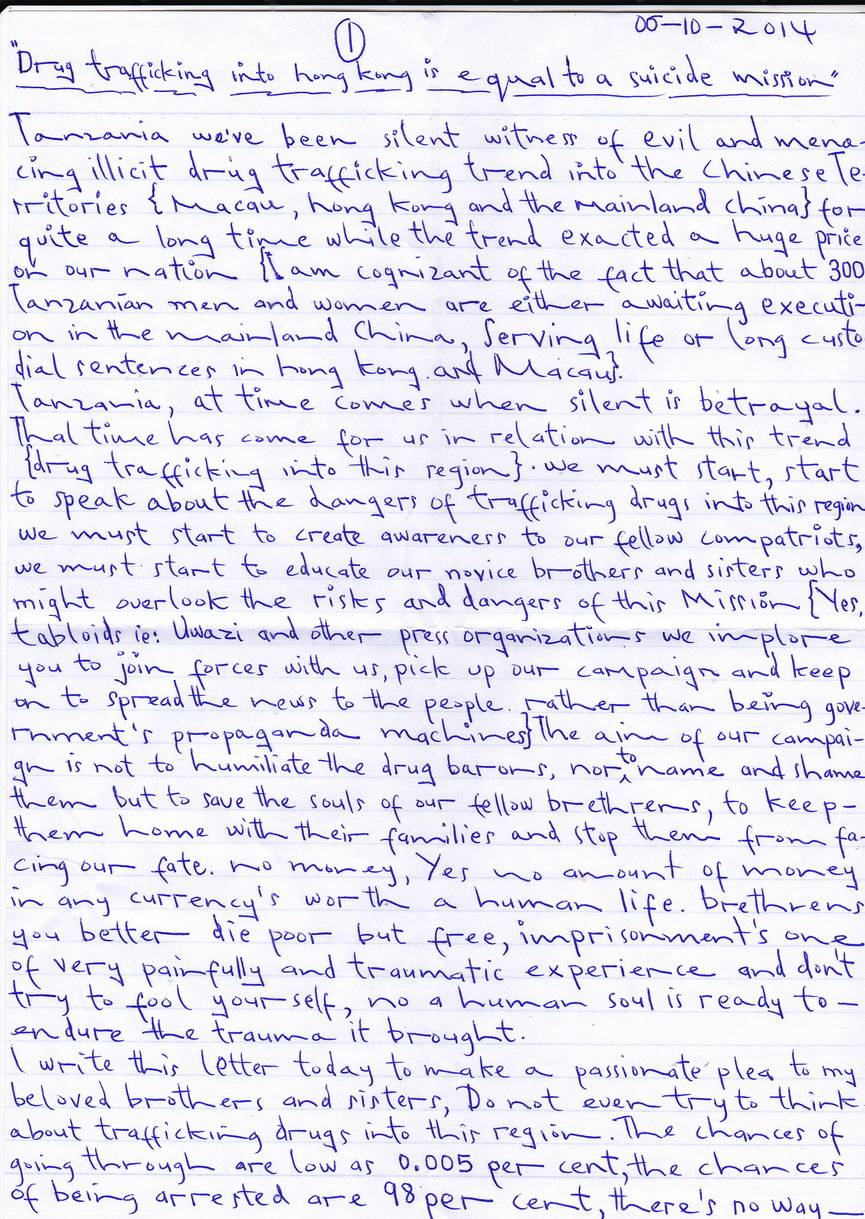 ①
05-10-2014
"Drug trafficking into hong kong is equal to a suicide mission"
Tanzania we've been silent witness of evil and mena-
cing illicit drug trafficking trend into the Chinese Te-
rritories {Macau, hong kong and the mainland China} for
quite a long time while the trend exacted a huge price
on our nation {I am cognizant of the fact that about 300
Tanzanian men and women are either awaiting executi-
on in the mainland China, Serving life or long custo
dial sentences in hong Kong. and Macau}.
Tanzania, at time comes when silent is betrayal.
That time has come for us in relation with this trend
{drug trafficking into this region}. we must start, start
to speak about the dangers of trafficking drugs into this region
we must start to create awareness to our fellow compatriots,
we must start to educate our novice brothers and sisters who
might overlook the risks and dangers of this Mission {Yes,
tabloids ie: Uwazi and other press organizations we implore
you to join forces with us, pick up our campaign and keep
on to spread the news to the people. rather than being gove-
rnment's propaganda machines} The aim of our campai-
gn is not to humiliate the drug barons, nor to name and shame
them but to save the souls of our fellow brethrens, to keep-
them home with their families and stop them from fa-
cing our fate. no money, Yes no amount of money
in any currency's worth a human life. brethrens
you better die poor but free, imprisonment's one
of very painfully and traumatic experience and don't
try to fool your-self, no a human soul is ready to-
endure the trauma it brought.
I write this letter today to make a passionate plea to my
beloved brothers and sisters, Do not even try to think
about trafficking drugs into this region. The chances of
going through are low as 0.005 per cent, the chances
of being arrested are 98 per cent, there's no way-